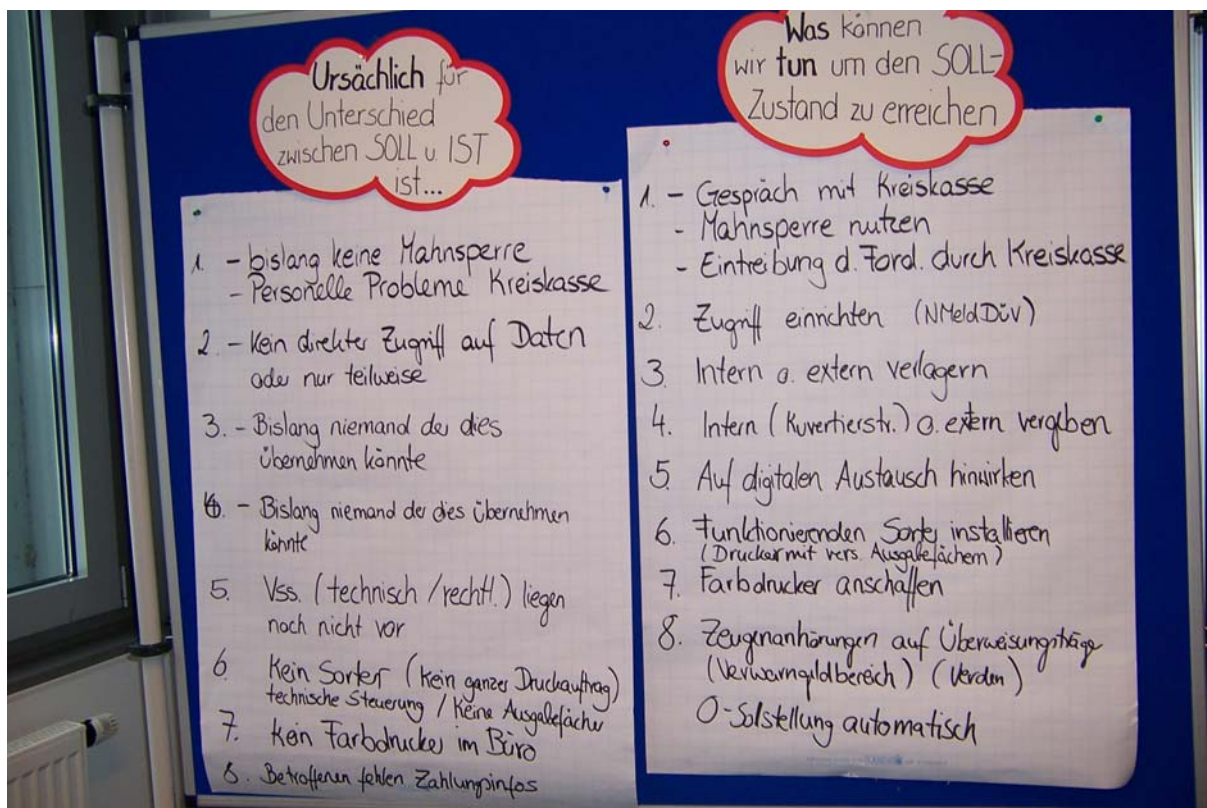 Ursächlich für
den Unterschied
zwischen SOLL u. IST
ist...
1. - bislang keine Mahnsperre
- Personelle Probleme Kreiskasse
2. - Kein direkter Zugriff auf Daten
oder nur teilweise
3. - Bislang niemand der dies
übernehmen könnte
4. - Bislang niemand der dies übernehmen
könnte
5. Vss. (technisch / rechtl.) liegen
noch nicht vor
6. Kein Sorter (Kein ganzer Druckauftrag)
technische Steuerung / Keine Ausgabefächer
7. Kein Farbdrucker im Büro
8. Betroffenen fehlen Zahlungsinfos
Was können
wir tun um den SOLL-
Zustand zu erreichen
1. - Gespräch mit Kreiskasse
- Mahnsperre nutzen
- Eintreibung d. Ford. durch Kreiskasse
2. Zugriff einrichten (NMeldDüV)
3. Intern o. extern verlagern
4. Intern (Kuvertierstr.) o. extern vergeben
5. Auf digitalen Austausch hinwirken
6. Funktionierenden Sorter installieren
(Drucker mit vers. Ausgabefächern)
7. Farbdrucker anschaffen
8. Zeugenanhörungen auf Überweisungsträger
(Verwarngeldbereich) (Verden)
0-Solstellung automatisch